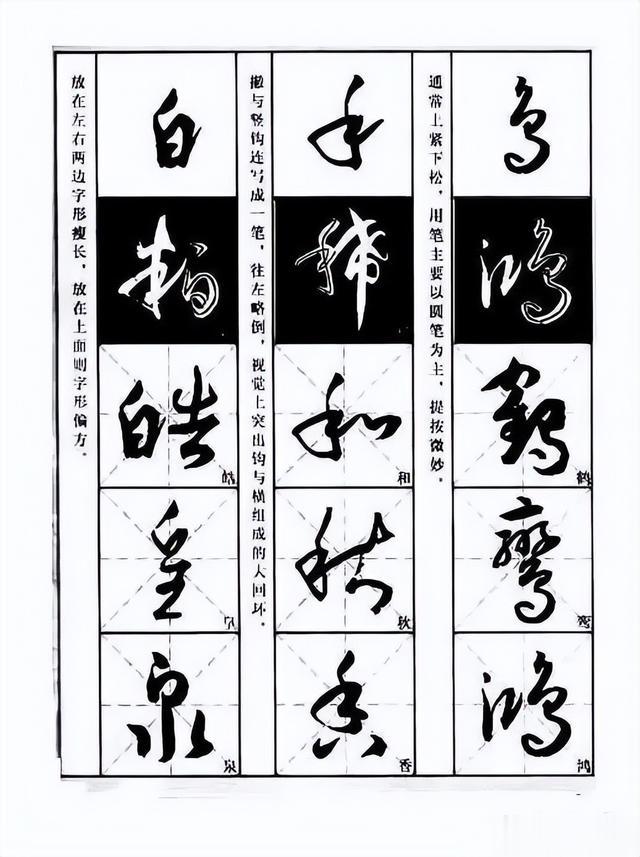 鸟
鸿
鹤
鹤
鸾
鸾
鸿
鸿
通常上紧下松，用笔主要以圆笔为主，提按微妙。
禾
稀
和
和
香
香
撇与竖钩连写成一笔，往左略倒，视觉上突出钩与横组成的大回环。
白
皓
皓
皇
泉
泉
放在左右两边字形瘦长，放在上面则字形偏方。